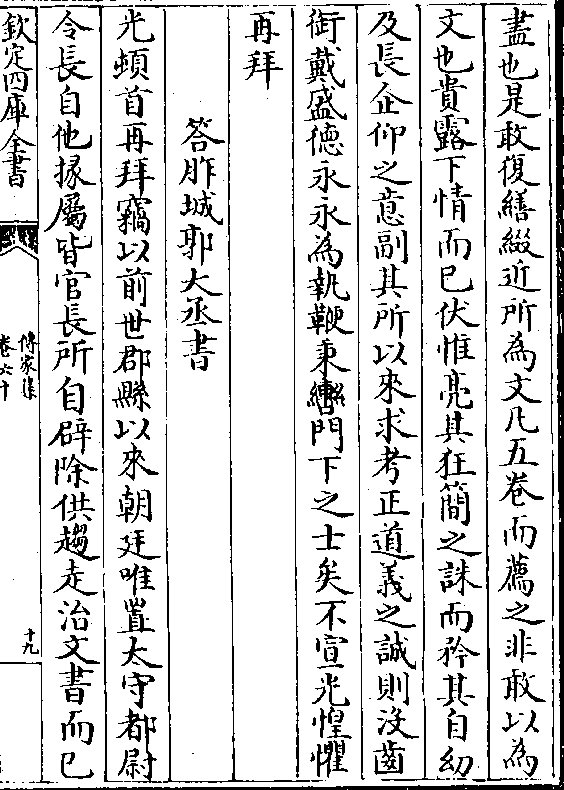 盡也是敢復繕綴近所為文凡五卷而薦之非敢以為
文也貴露下情而已伏惟亮其狂簡之誅而矜其自幼
及長企仰之意副其所以來求考正道義之誠則沒齒
銜戴盛徳永永為執鞭秉轡門下之士矣不宣光惶懼
再拜
答胙城郭大丞書
光頓首再拜竊以前世郡縣以來朝廷唯置太守都尉
令長自他掾屬皆官長所自辟除供趨走治文書而已
欽定四庫全書
傳家集
卷六十
十九